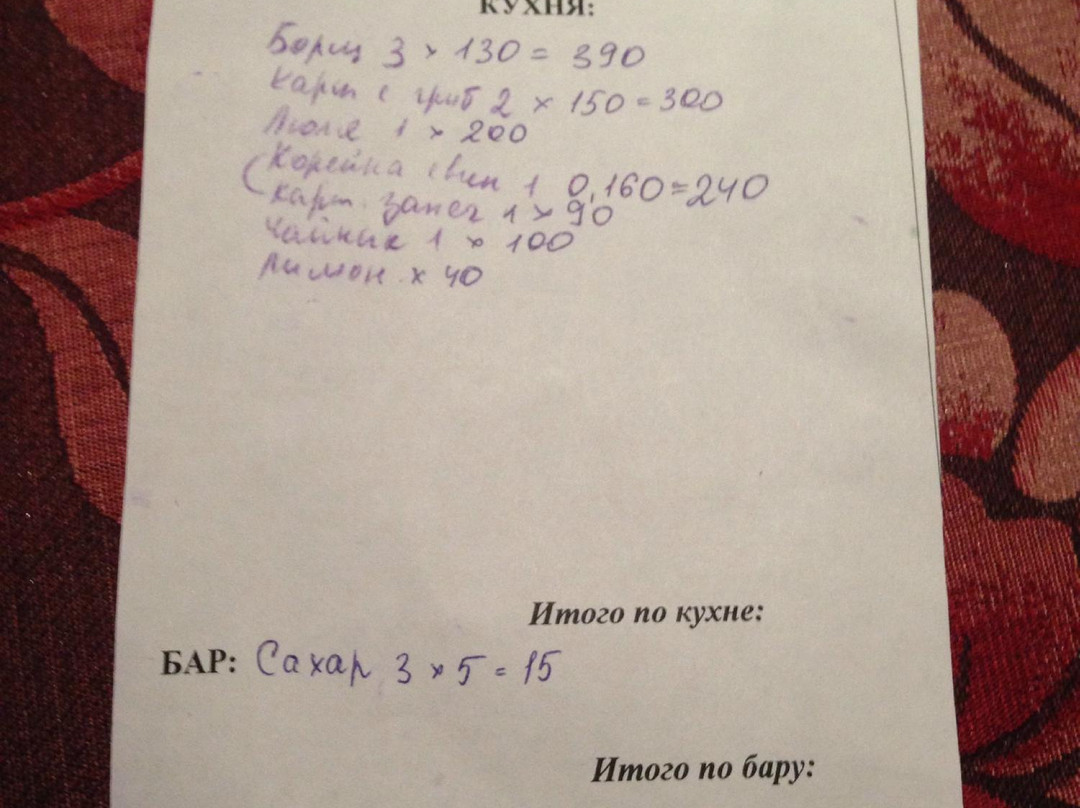 КУХНЯ:
Борщ 3 × 130 = 390
Карт с гриб 2 × 150 = 300
Люля 1 × 200
(Корейка свин 1 0,160 = 240
Карт. запеч 1 × 90
Чайник 1 × 100
Лимон × 40
Итого по кухне:
БАР: Сахар 3 × 5 = 15
Итого по бару: